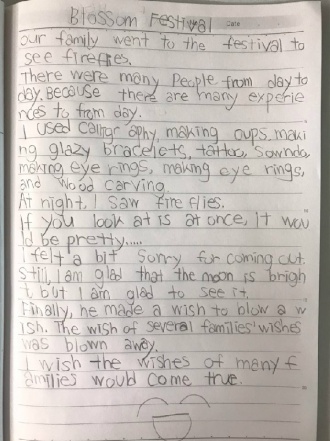 Blossom Festival
DATE
our family went to the festival to
see fireflies.
there were many People from day to
day. Because there are many experie
nces to from day.
I used calligraphy, making cups. maki
ng glazy bracelets, tattoo,
making eye rings, making eye rings,
and wood carving.
At night, I saw fire flies.
If you look at is at once, it wou
ld be pretty.....
I felt a bit sorry for coming out.
Still, I am glad that the moon is brigh
t but I am glad to see it.
Finally, he made a wish to blow a w
ish. The wish of several families' wishes
was blown away.
I wish the wishes of many f
amilies would come true.